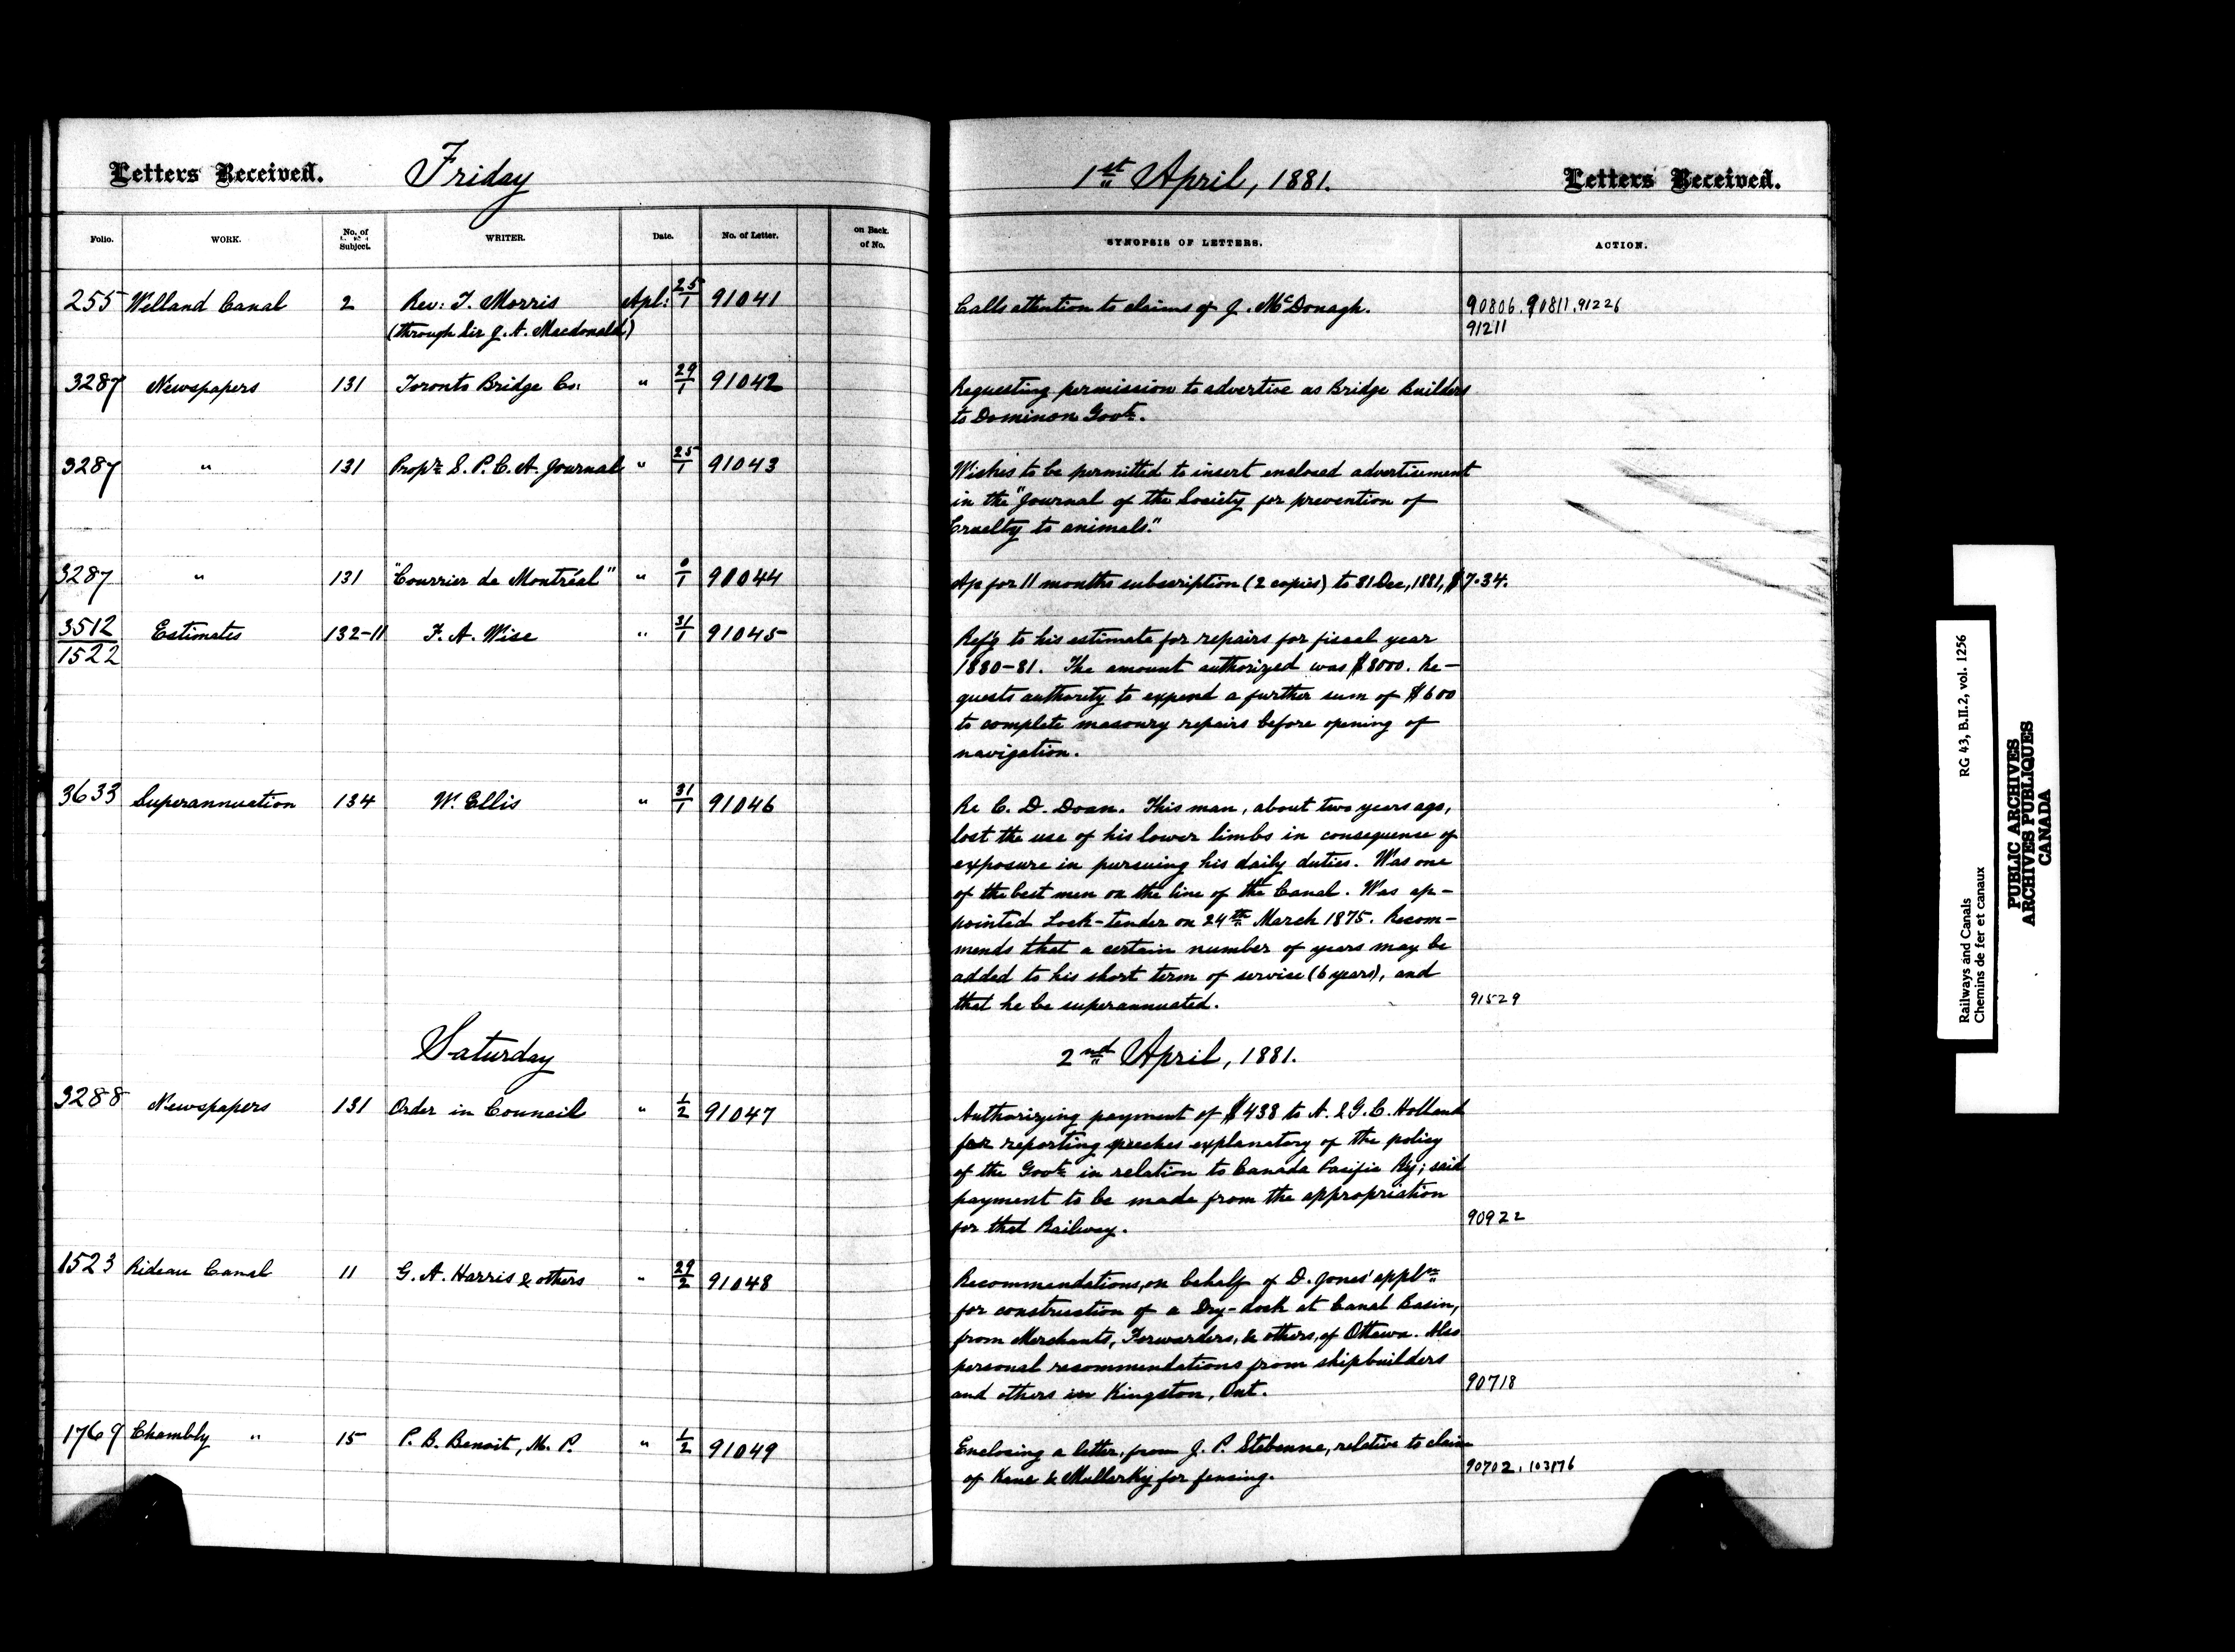 Letters Received. Friday
1st April, 1881. Letters Received.
Folio. WORK. No. of Subject. WRITER. Date. No. of Letter. on Back. of No.
SYNOPSIS OF LETTERS. ACTION.
255 Welland Canal 2 Rev: T. Morris Apl: 25/1 91041
(through Sir J. A. Macdonald)
Calls attention to claims of J. McDonagh. 90806. 90811. 91226
91211
3287 Newspapers 131 Toronto Bridge Co. " 29/1 91042
Requesting permission to advertise as Bridge Builders
to Dominion Govt.
3287 " 131 Propr. S. P. C. A. Journal " 25/1 91043
Wishes to be permitted to insert enclosed advertisement
in the "Journal of the Society for prevention of
Cruelty to animals."
3287 " 131 "Courrier de Montréal" " 0/1 91044
Ap for 11 months subscription (2 copies) to 31 Dec, 1881, $7.34.
3512/1522 Estimates 132-11 F. A. Wise " 31/1 91045
Ref'g to his estimate for repairs for fiscal year
1880-81. The amount authorized was $8000. Re-
quests authority to expend a further sum of $600
to complete masonry repairs before opening of
navigation.
3633 Superannuation 134 W. Ellis " 31/1 91046
Re C. D. Doan. This man, about two years ago,
lost the use of his lower limbs in consequense of
exposure in pursuing his daily duties. Was one
of the best men on the line of the Canal. Was ap-
pointed Lock-tender on 24th March 1875. Recom-
mends that a certain number of years may be
added to his short term of servise (6 years), and
that he be superannuated. 91529
Saturday
2nd April, 1881.
3288 Newspapers 131 Order in Council " 1/2 91047
Authorizing payment of $438 to A. & G. C. Holland
for reporting speeches explanatory of the policy
of the Govt. in relation to Canada Pacific Ry; said
payment to be made from the appropriation
for that Railway. 90922
1523 Rideau Canal 11 G. A. Harris & others " 29/2 91048
Recommendations, on behalf of D. Jones' appln.
for construction of a Dry-dock at Canal Basin,
from Merchants, Forwarders, & others, of Ottawa. Also
personal recommendations from shipbuilders
and others in Kingston, Ont. 90718
1769 Chambly " 15 P. B. Benoit, M. P. " 1/2 91049
Enclosing a letter, from J. P. Stebenne, relative to claim
of Kane & Mullarky for fencing. 90702. 103176
Railways and Canals RG 43, B.II.2, vol. 1256
Chemins de fer et canaux
PUBLIC ARCHIVES
ARCHIVES PUBLIQUES
CANADA